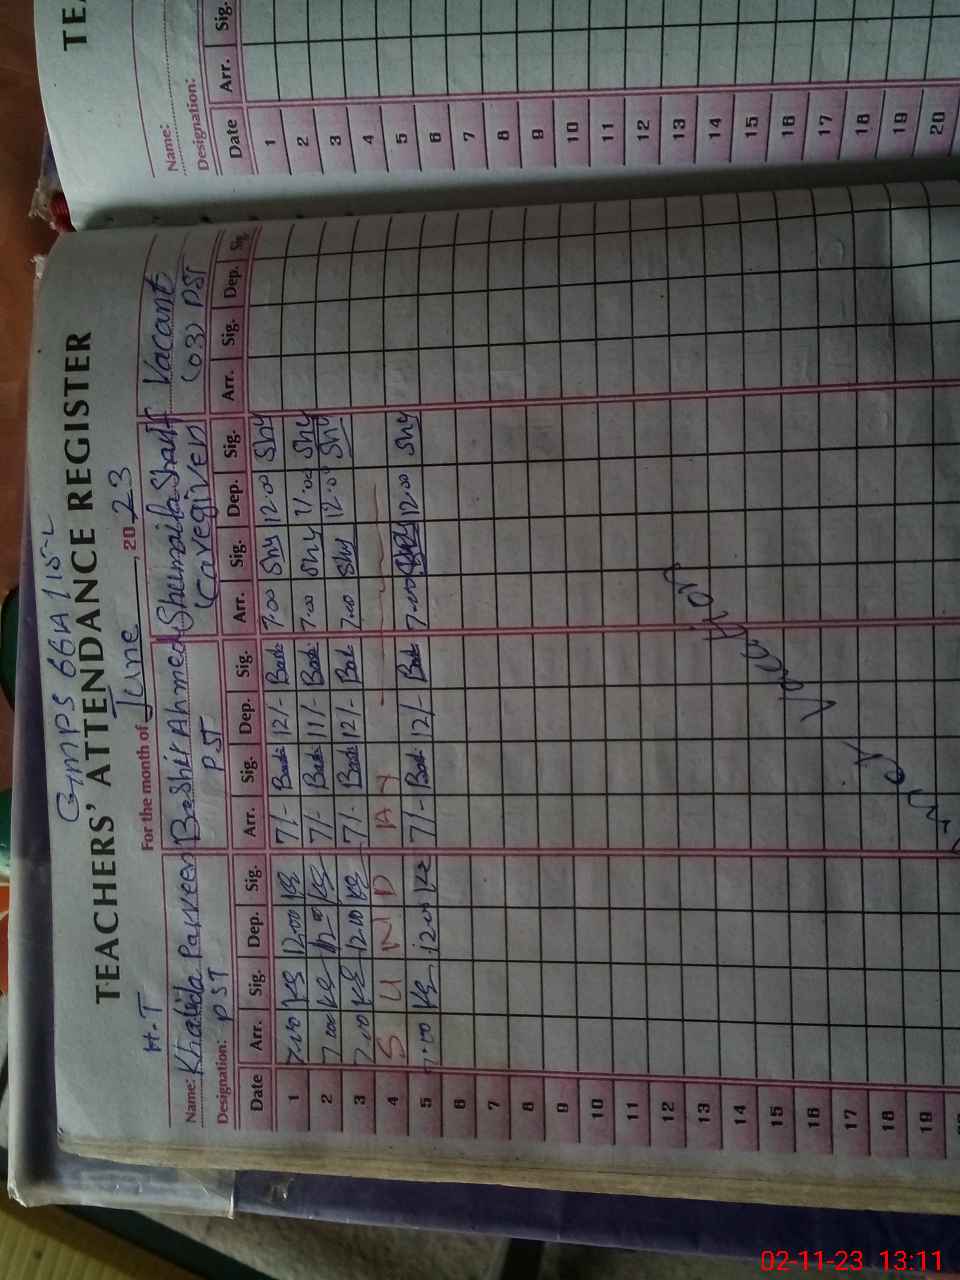 GMPS 66A/15-L
TEACHERS' ATTENDANCE REGISTER
For the month of June, 2023
H.T
Name: Khalida Parveen Bashir Ahmed Shumaila Sharif Vacant
Designation: PST PST (Caregiver) (03) PST
Date Arr. Sig. Dep. Sig. Arr. Sig. Dep. Sig. Arr. Sig. Dep. Sig. Arr. Sig. Dep. Sig.
1 7.00 12.00 7/- 12/- 7.00 Shy 12.00 Shy
2 7.00 7/- 11/- 7.00 Shy 11.00 Shy
3 7.00 12.00 7/- 12/- 7.00 Shy 12.00 Shy
4 S U N D A Y
5 7.00 12.00 7/- 12/- 7.00 12.00 Shy
6
7
8
9
10
11
12
13
14
15
16
17
18
19
Vacation
TEA
Name:
Designation:
Date Arr. Sig.
1
2
3
4
5
6
7
8
9
10
11
12
13
14
15
16
17
18
19
20
02-11-23 13:11